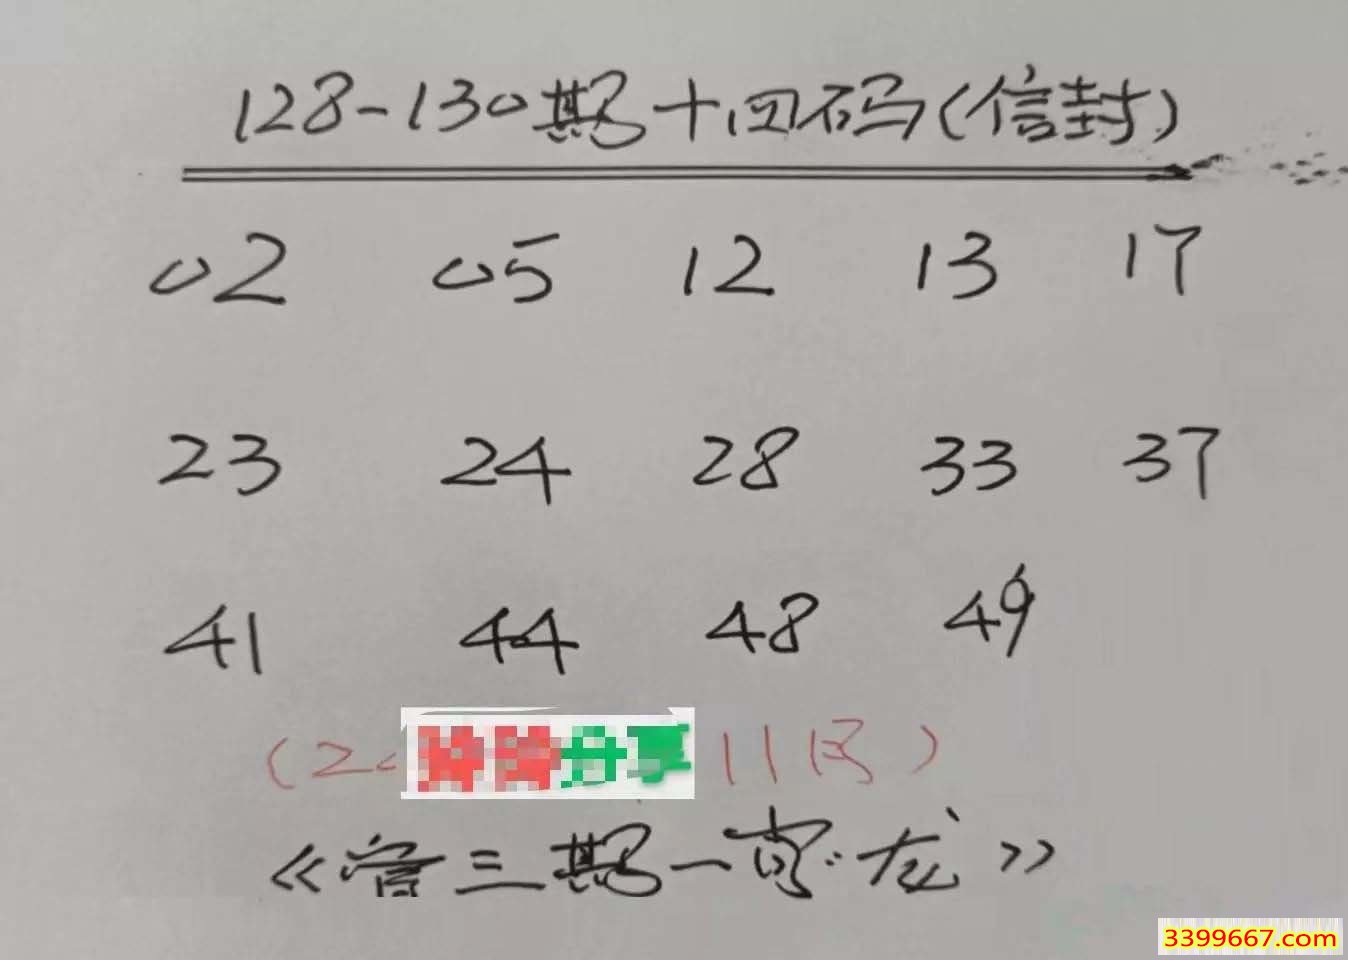 128-130期十四码(信封)
02 05 12 13 17
23 24 28 33 37
41 44 48 49
(20 分享 11
《管三期一 龙》
3399667.com